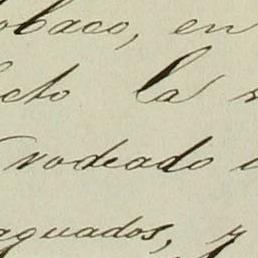 obaco, en
cto la
rodeado
aguados, y